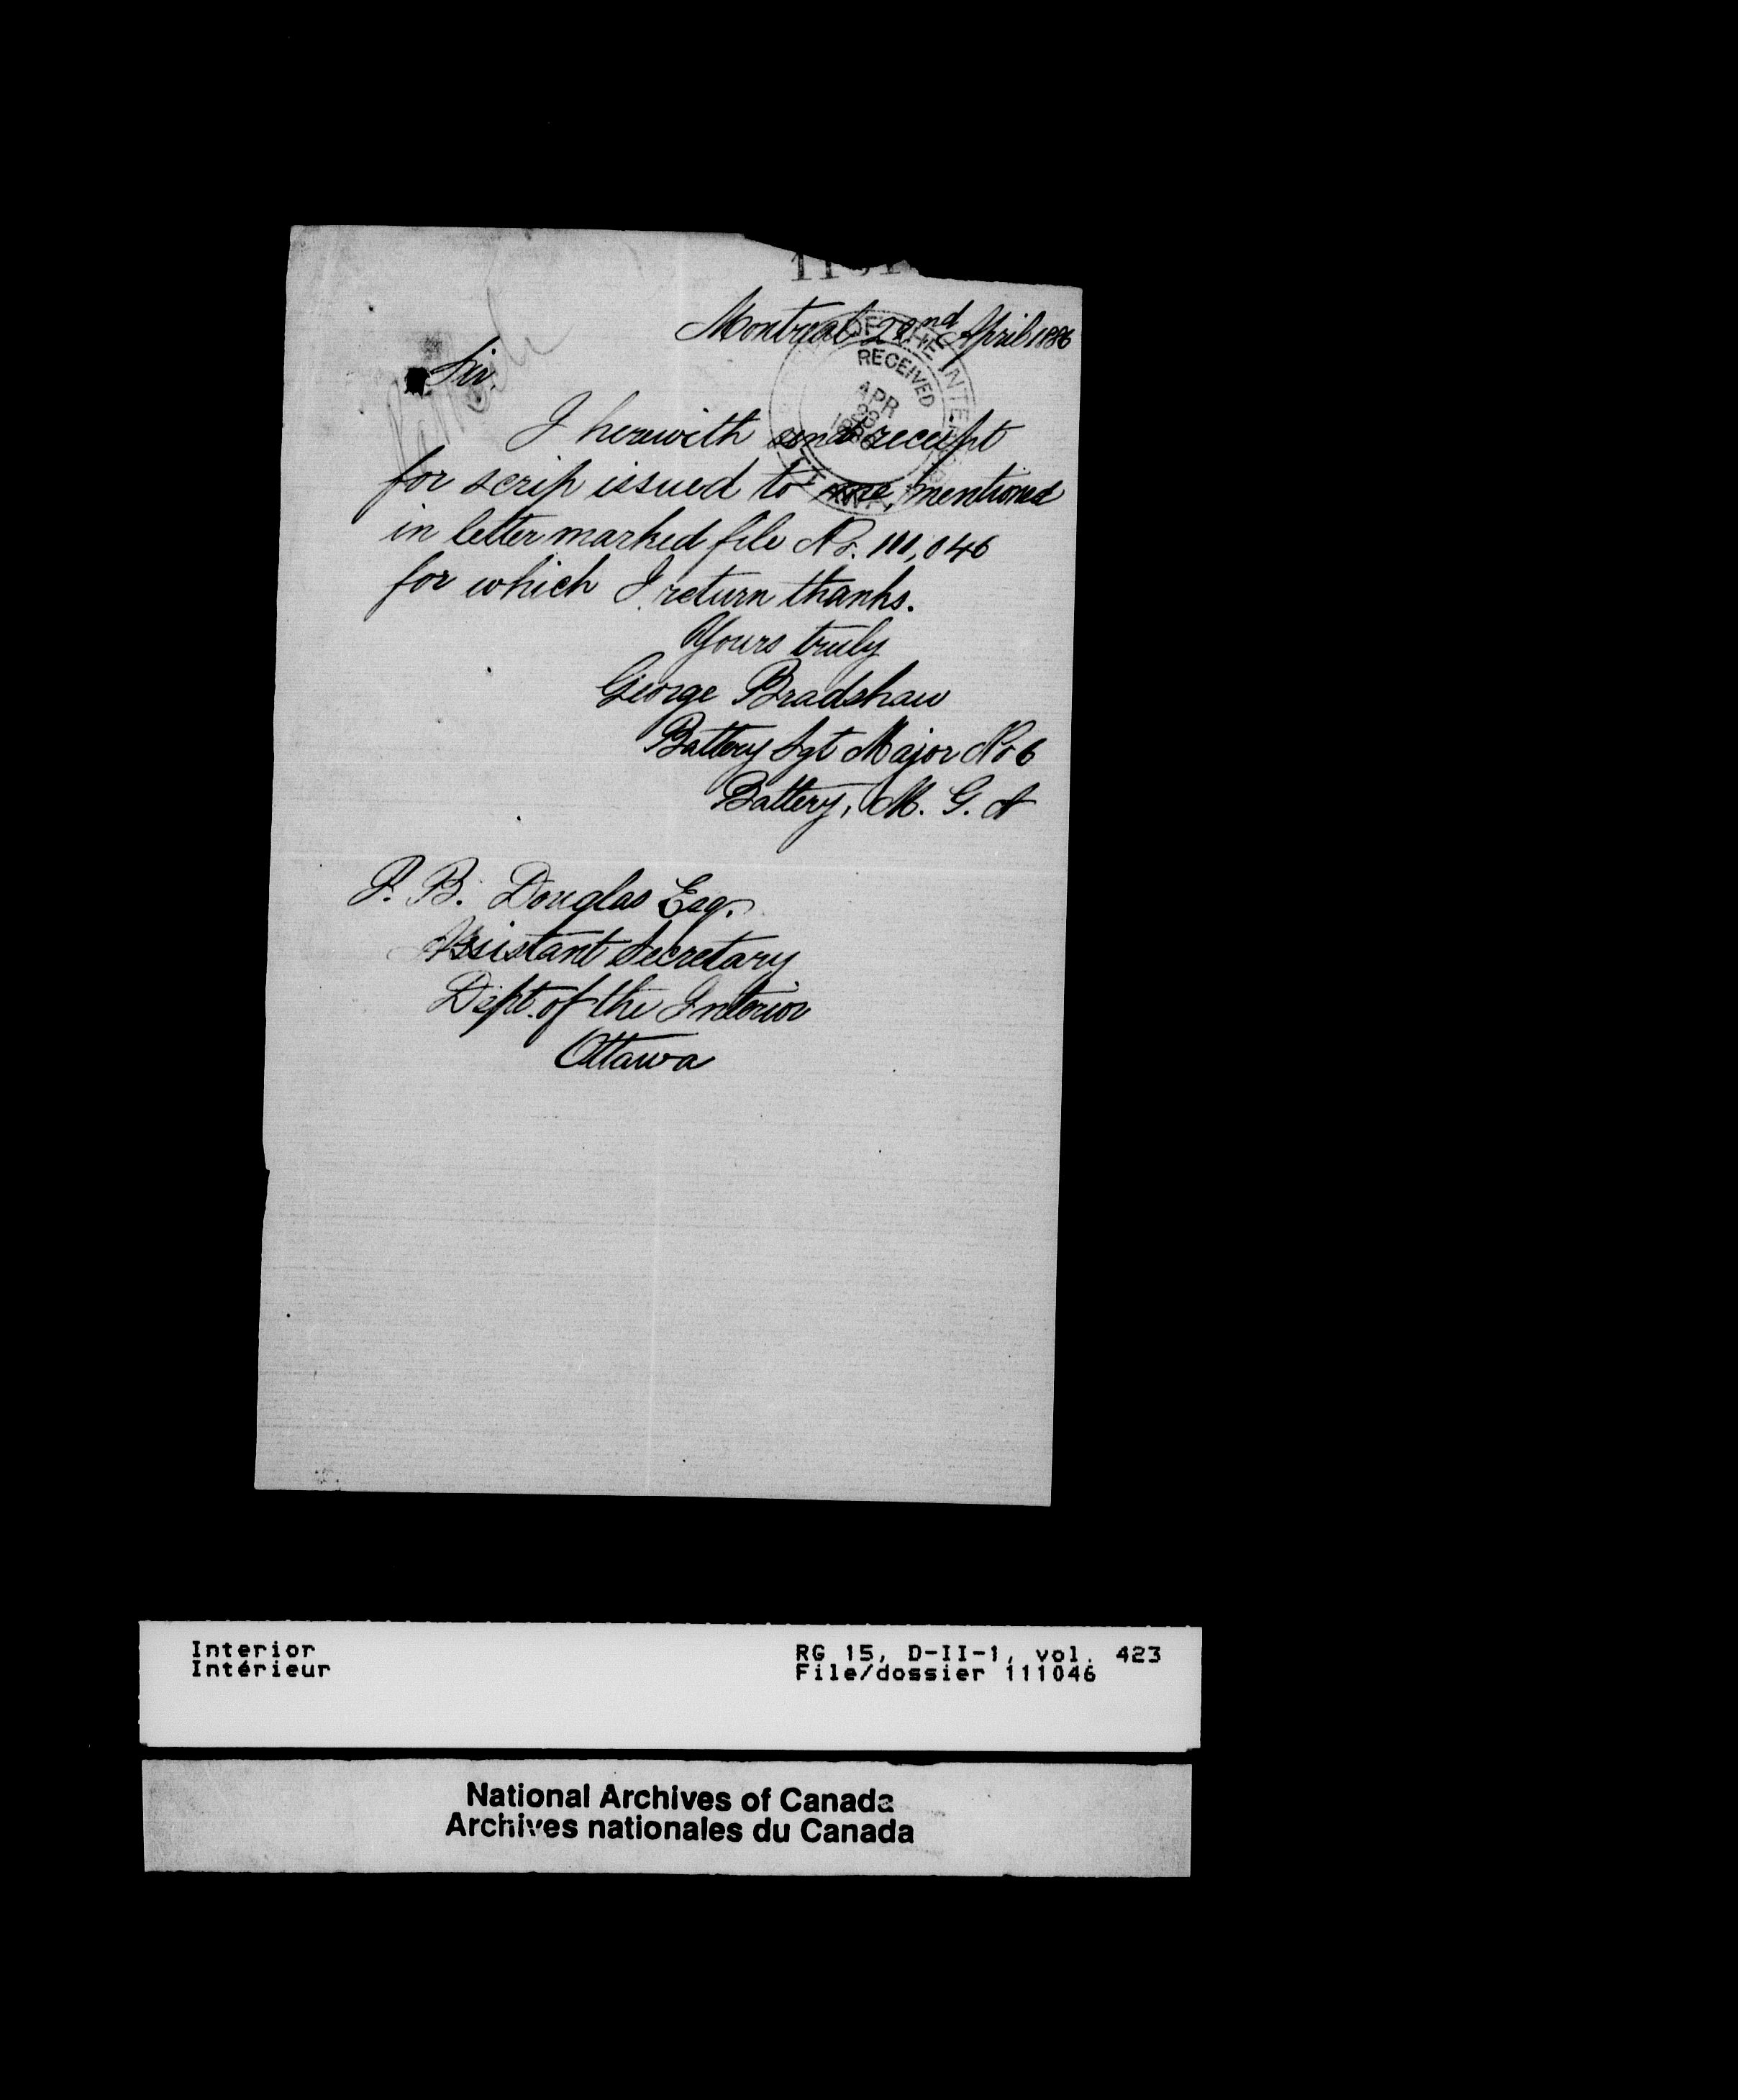 Montreal 22nd April 1886
Sir,
I herewith send receipt
for scrip issued to me, mentioned
in letter marked file No. 111,046
for which I return thanks.
Yours truly
George Bradshaw
Battery Sgt Major No 6
Battery, M. G. A
P. B. Douglas Esq.
Assistant Secretary
Dept. of the Interior
Ottawa
OF THE INTERIOR
RECEIVED
APR
1886
OTTAWA
Interior
Intérieur
RG 15, D-II-1, vol. 423
File/dossier 111046
National Archives of Canada
Archives nationales du Canada